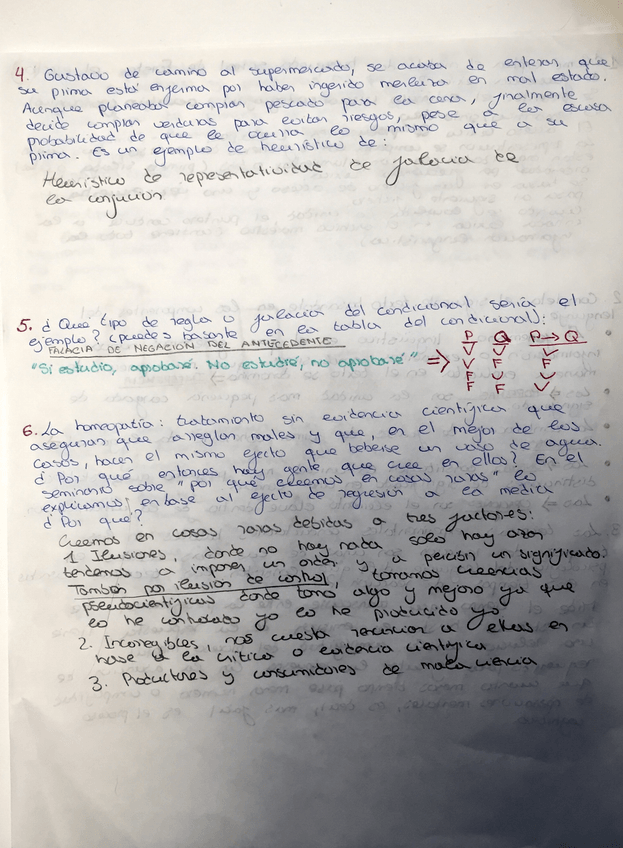 4. Gustavo de camino al supermercado, se acaba de enterar que
su prima está enferma por haber ingerido merluza en mal estado.
Aunque planeaba comprar pescado para la cena, finalmente
decide comprar verduras para evitar riesgos, pese a la escasa
probabilidad de que le ocurra lo mismo que a su
prima. Es un ejemplo de heurístico de:
Heurístico de representatividad de falacia de
la conjucion
5. ¿Qué tipo de regla o falacia del condicional sería el
ejemplo? (puedes basarte en la tabla del condicional):
FALACIA DE NEGACION DEL ANTECEDENTE
"Si estudio, aprobaré. No estudié, no aprobaré" => P Q P→Q
V V V
V F F
F V V
F F V
6. La homeopatía: tratamiento sin evidencia científica que
aseguran que arreglan males y que, en el mejor de los
casos, hacen el mismo efecto que beberse un vaso de agua.
¿Por qué entonces hay gente que cree en ellos? En el
seminario sobre "por qué creemos en cosas raras" lo
explicamos en base al efecto de regresión a la media
¿Por qué?
Creemos en cosas raras debidas a tres factores:
1 Ilusiones, donde no hay nada solo hay azar
tendemos a imponer un orden y a percibir un significado.
Tambien por ilusion de control, tomamos creencias
pseudocientíficas donde tomo algo y mejoro ya que
lo he controlado yo lo he producido yo
2. Incorregibles, nos cuesta renunciar a ellas en
base a la crítica o evidencia científica
3. Productores y consumidores de mala ciencia